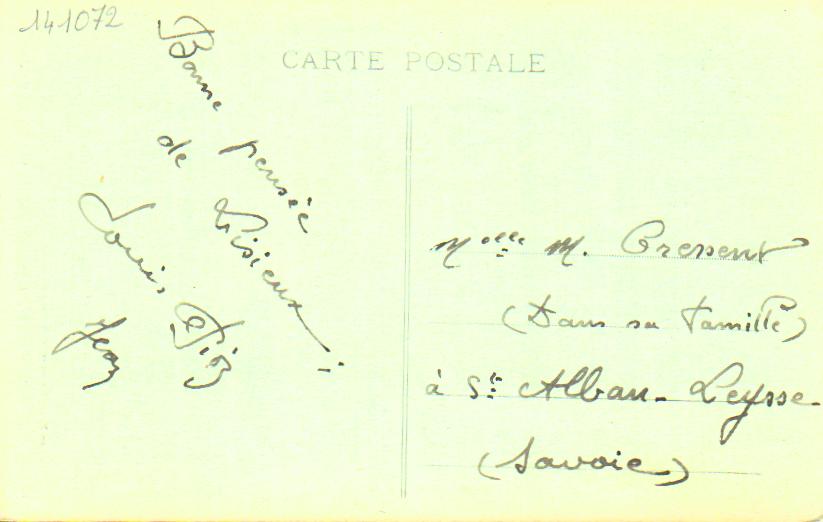 141072
CARTE POSTALE
Bonne pensée
de Lisieux
Louis
Jean
Melle M. Cressent
(Dans sa famille)
à St Alban-Leysse-
(Savoie)